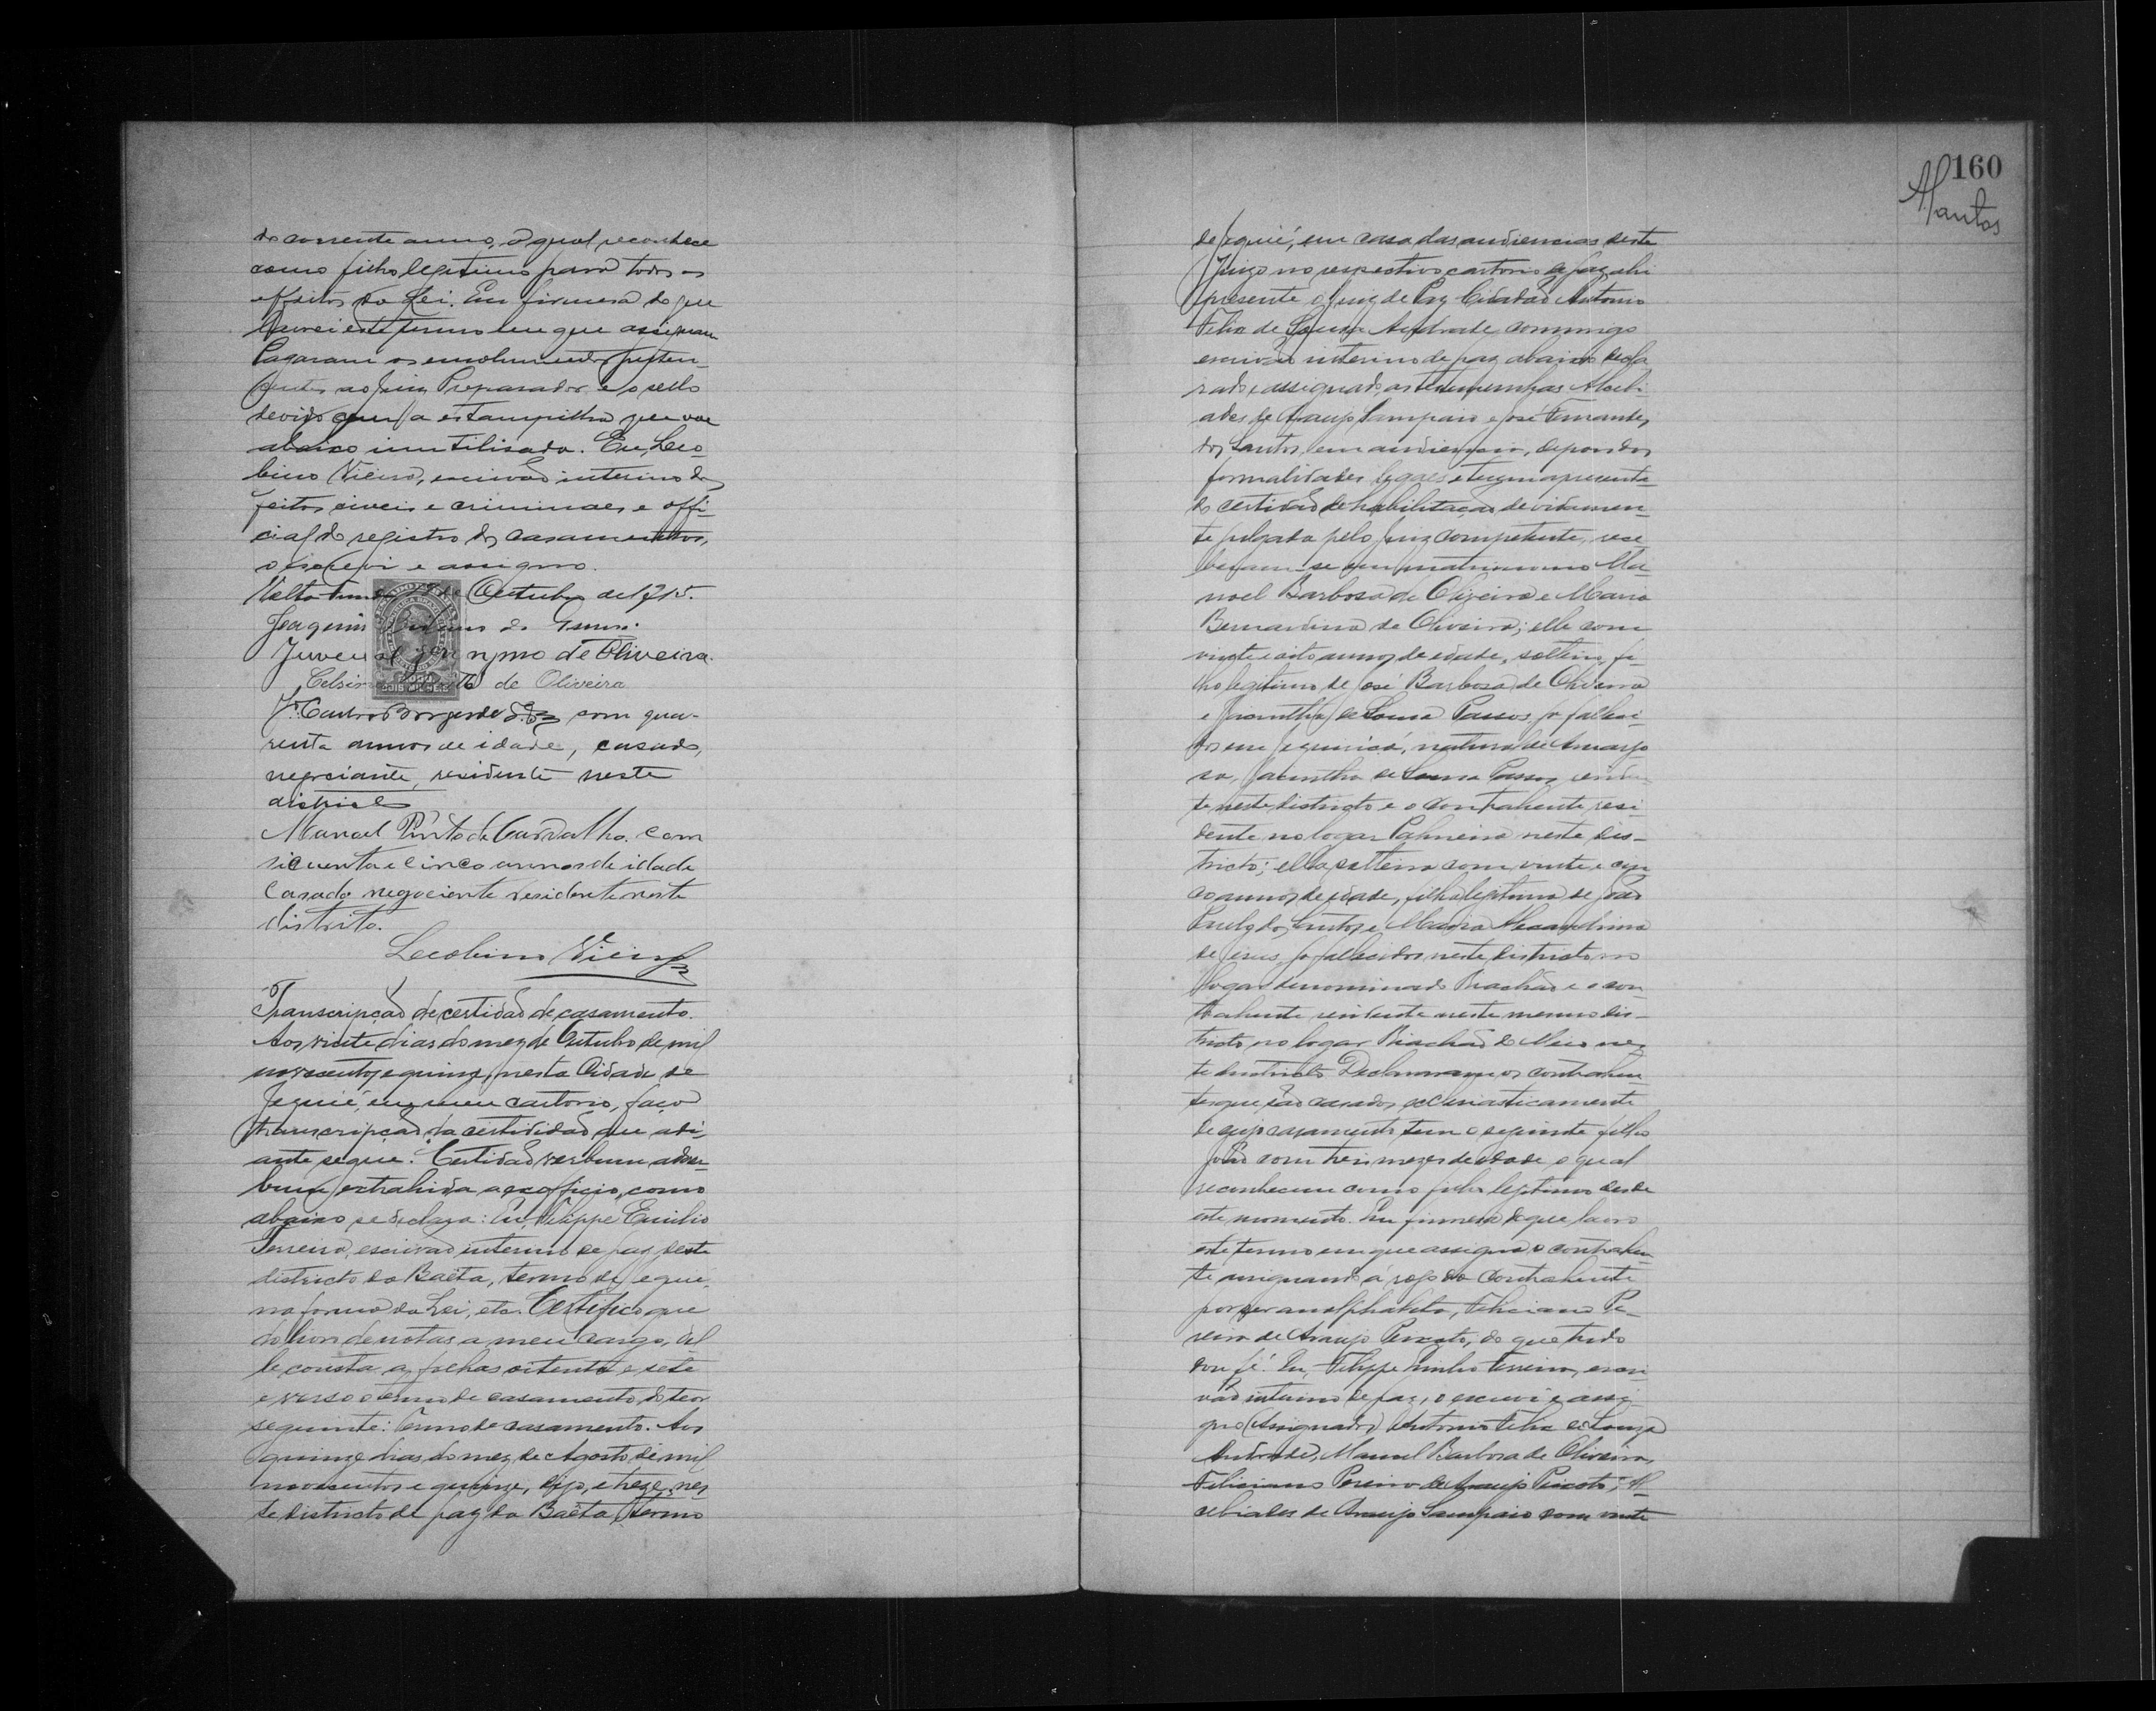 do corrente anno, o qual reconhece
como filho legitimo para todos os
effeitos da Lei. Em firmesa do que
lavrei este termo em que assignam
Pagaram os emolumentos perten-
centes ao Juiz Preparador e o sello
devido com a estampilha que vae
abaixo inutilisada. Eu, Leo-
bino Vieira, escrivão interino dos
feitos civeis e criminaes e offi-
cial do registro dos casamentos,
o escrevi e assigno.
de Outubro de 1915.
Joaquim
Juvenal Jeronymo de Oliveira.
de Oliveira
com qua-
renta annos de idade, casado,
negociante, residente neste
districto
Manoel Pinto de Carvalho. com
sicuenta e cinco annos de idade
Casado negociente residente neste
distrito.
Leobino Vieira
Transcripção de certidão de casamento.
Aos vinte dias do mez de Outubro de mil
novecentos e quinze, nesta Cidade de
Jequié, em meu cartorio, faço
transcripção da certidão que adi-
ante segue: Certidão verbum adver-
bum extrahida a exofficio, como
abaixo se declara: Eu, Felippe Emilio
Ferreira, escrivão interino de paz deste
districto da Baêta, termo de Jequié,
na forma da Lei, etc. Certifico que
do livro de notas a meu cargo, del
le consta a folhas oitenta e sete
e verso o termo de casamento do teor
seguinte: Termo de casamento. Aos
quinze dias do mez de Agosto de mil
novecentos e quinze, digo, e treze, nes-
te districto de paz da Baêta, termo
160
de Jequié, em casa das audiencias deste
Juizo no respectivo cartorio de paz ahi
presente o Juiz de Paz Cidadão Antonio
Felix de Souza Andrade commigo
escrivão interino de paz abaixo decla
rado e assignado, as testemunhas Alcebi-
ades de Araujo Sampaio e José Fernandes
dos Santos, em audiencia, depois das
formalidades legaes e terem apresenta-
do certidão de habilitação devidamen-
te julgada pelo Juiz competente, rece
beram-se em matrimonio Ma-
noel Barbosa de Oliveira e Maria
Bernardina de Oliveira; elle com
vinte e oito annos de edade, solteiro, fi-
lho legitimo de José Barbosa de Oliveira
e Jacintha de Sousa Passos, já falleci-
dos em natural de Amargo
sa, Jacintha de Sousa Passos residen-
te neste districto e o contrahente resi
dente no logar Palmeira neste dis-
tricto; ella solteira com vinte e cin
co annos de edade, filha legitima de João
dos Santos e Maria Alexandrina
de Jesus, já fallecidos neste districto no
logar denominado Riachão e a con-
trahente residente neste mesmo dis-
tricto, no logar Riachão do Meio nes-
te districto. Declararam os contrahen-
tes que são casados ecclesiasticamente
de cujo casamento tem o seguinte filho
João com tres mezes de edade o qual
reconhecem como filho legitimo desde
este momento. Em firmesa do que lavro
este termo em que assigna o contrahen-
te assignando á rogo da contrahente
por ser analphabeta, Feliciano Pe-
reira de Araujo Peixoto, do que tudo
dou fé. Eu, Felippe Emilio Ferreira, escri-
vão interino de paz, o escrevi e assi-
gno (Assignados) Antonio Felix de Souza
Andrade, Manoel Barbosa de Oliveira,
Feliciano Pereira de Araujo Peixoto; Al-
cebiades de Araujo Sampaio com vinte